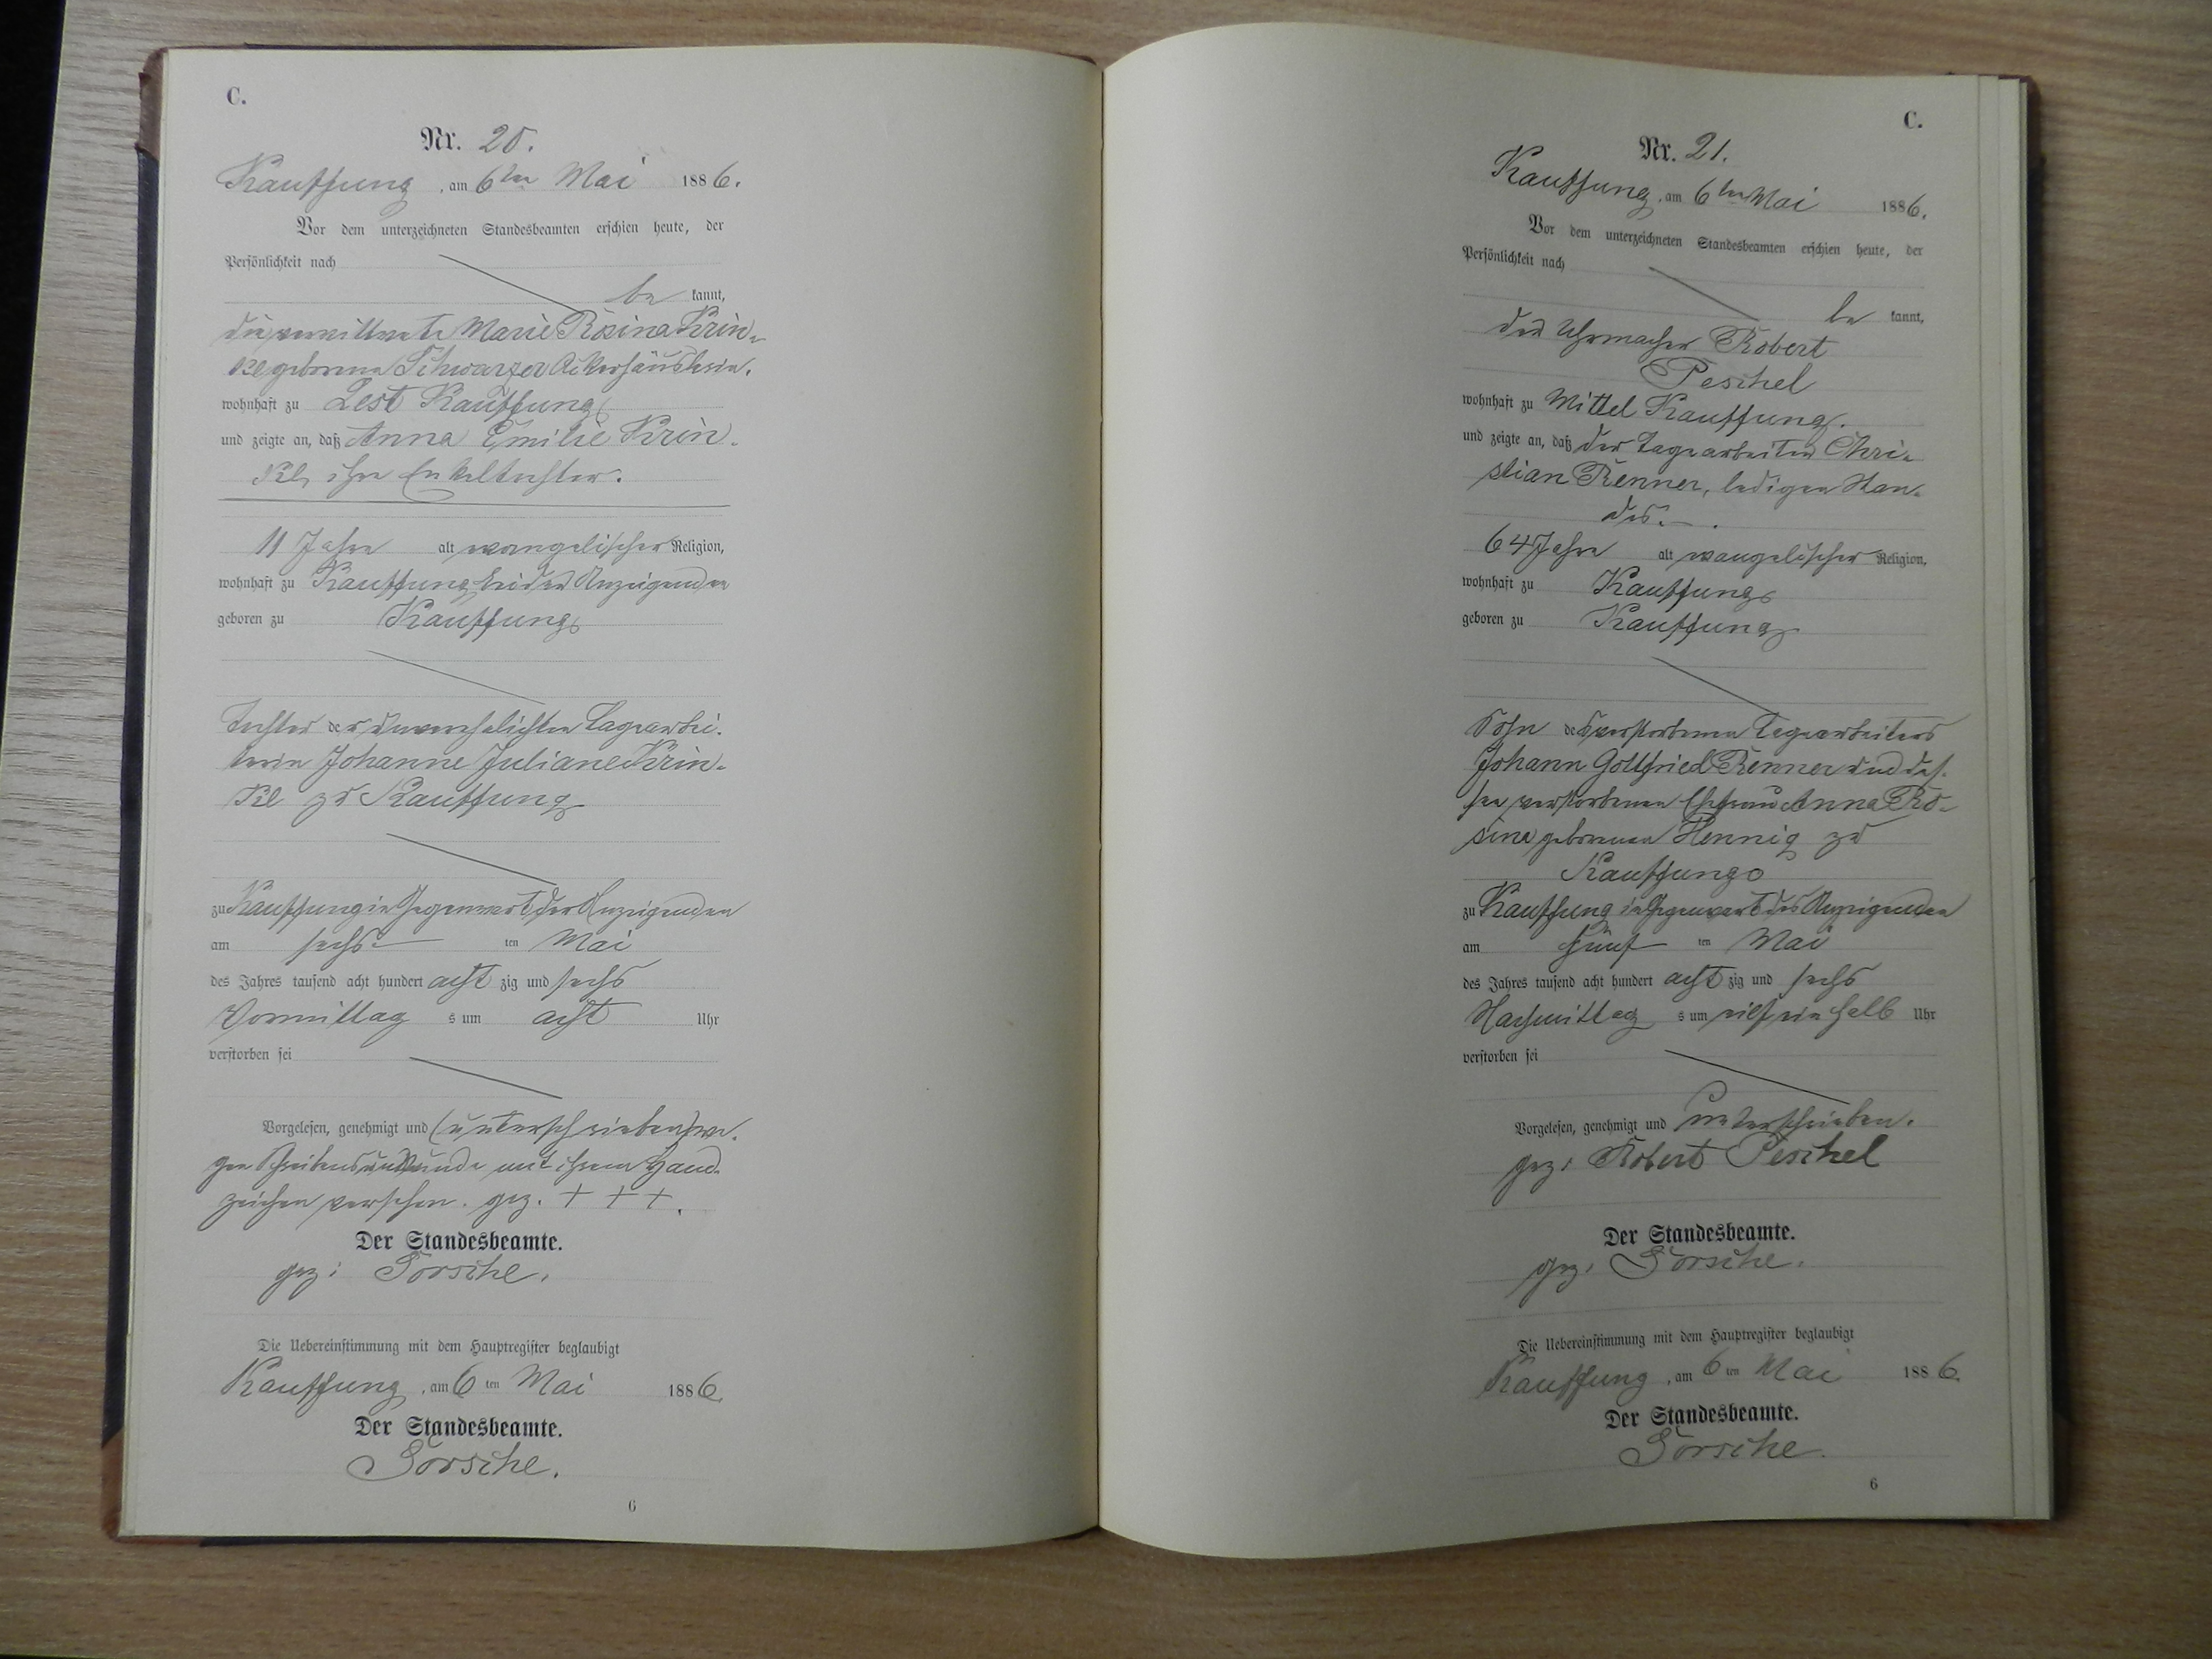 C.
Nr. 20.
Kauffung, am 6ten Mai 1886.
Vor dem unterzeichneten Standesbeamten erschien heute, der
Persönlichkeit nach
be kannt,
die verwittwete Marie Rosina Krin-
kel geborene Schwarzer Ackerhäuslerin.
wohnhaft zu Lest Kauffung
und zeigte an, daß Anna Emilie Krin-
kel, ihre Enkeltochter.
11 Jahre alt evangelischer Religion,
wohnhaft zu Kauffung bei der Anzeigenden
geboren zu Kauffung
Tochter der unverehelichten Tagearbei-
terin Johanne Juliane Krin-
kel zu Kauffung
zu Kauffung in Gegenwart der Anzeigenden
am sechs ten Mai
des Jahres tausend acht hundert acht zig und sechs
Vormittag s um acht Uhr
verstorben sei
Vorgelesen, genehmigt und (unterschrieben) we-
gen Schreibensunkunde mit ihrem Hand-
zeichen versehen. gez. + + +.
Der Standesbeamte.
gez: Sorsche.
Die Uebereinstimmung mit dem Hauptregister beglaubigt
Kauffung, am 6 ten Mai 1886.
Der Standesbeamte.
Sorsche.
6
C.
Nr. 21.
Kauffung, am 6ten Mai 1886.
Vor dem unterzeichneten Standesbeamten erschien heute, der
Persönlichkeit nach
be kannt,
der Uhrmacher Robert
Peschel
wohnhaft zu Mittel Kauffung.
und zeigte an, daß der Tagearbeiter Chri-
stian Renner, ledigen Stan-
des.
64 Jahre alt evangelischer Religion,
wohnhaft zu Kauffung
geboren zu Kauffung
Sohn des verstorbenen Tagearbeiters
Johann Gottfried Renner und des-
sen verstorbenen Ehefrau Anna Ro-
sine geborenen Hennig zu
Kauffung
zu Kauffung in Gegenwart des Anzeigenden
am fünf ten Mai
des Jahres tausend acht hundert acht zig und sechs
Nachmittag s um elf ein halb Uhr
verstorben sei
Vorgelesen, genehmigt und unterschrieben.
gez: Robert Peschel
Der Standesbeamte.
gez: Sorsche.
Die Uebereinstimmung mit dem Hauptregister beglaubigt
Kauffung, am 6 ten Mai 1886.
Der Standesbeamte.
Sorsche.
6